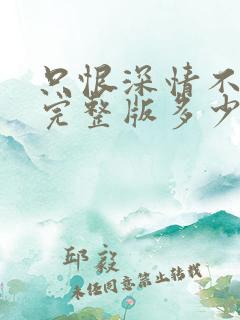 只恨深情不
完整版多少
邱毅
未经同意禁止转载